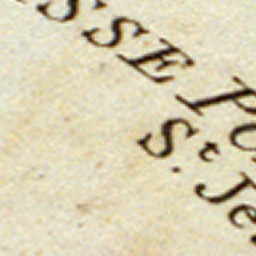 SSE PO
S. t Je